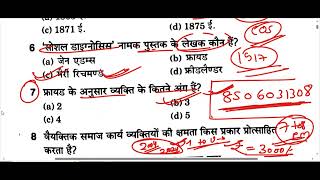 (c) 1871 ई.
(d) 1875 ई.
COS
6 'सोशल डाइग्नोसिस' नामक पुस्तक के लेखक कौन है?
(a) जेन एडम्स
(b) फ्रायड
1917
(c) मैरी रिचमण्ड
(d) फ्रीडलैण्डर
7 फ्रायड के अनुसार व्यक्ति के कितने अंग हैं?
(a) 2
(b) 3
8506031308
(c) 4
(d) 5
8 वैयक्तिक समाज कार्य व्यक्तियों की क्षमता किस प्रकार प्रोत्साहित
करता है?
= 3000/-